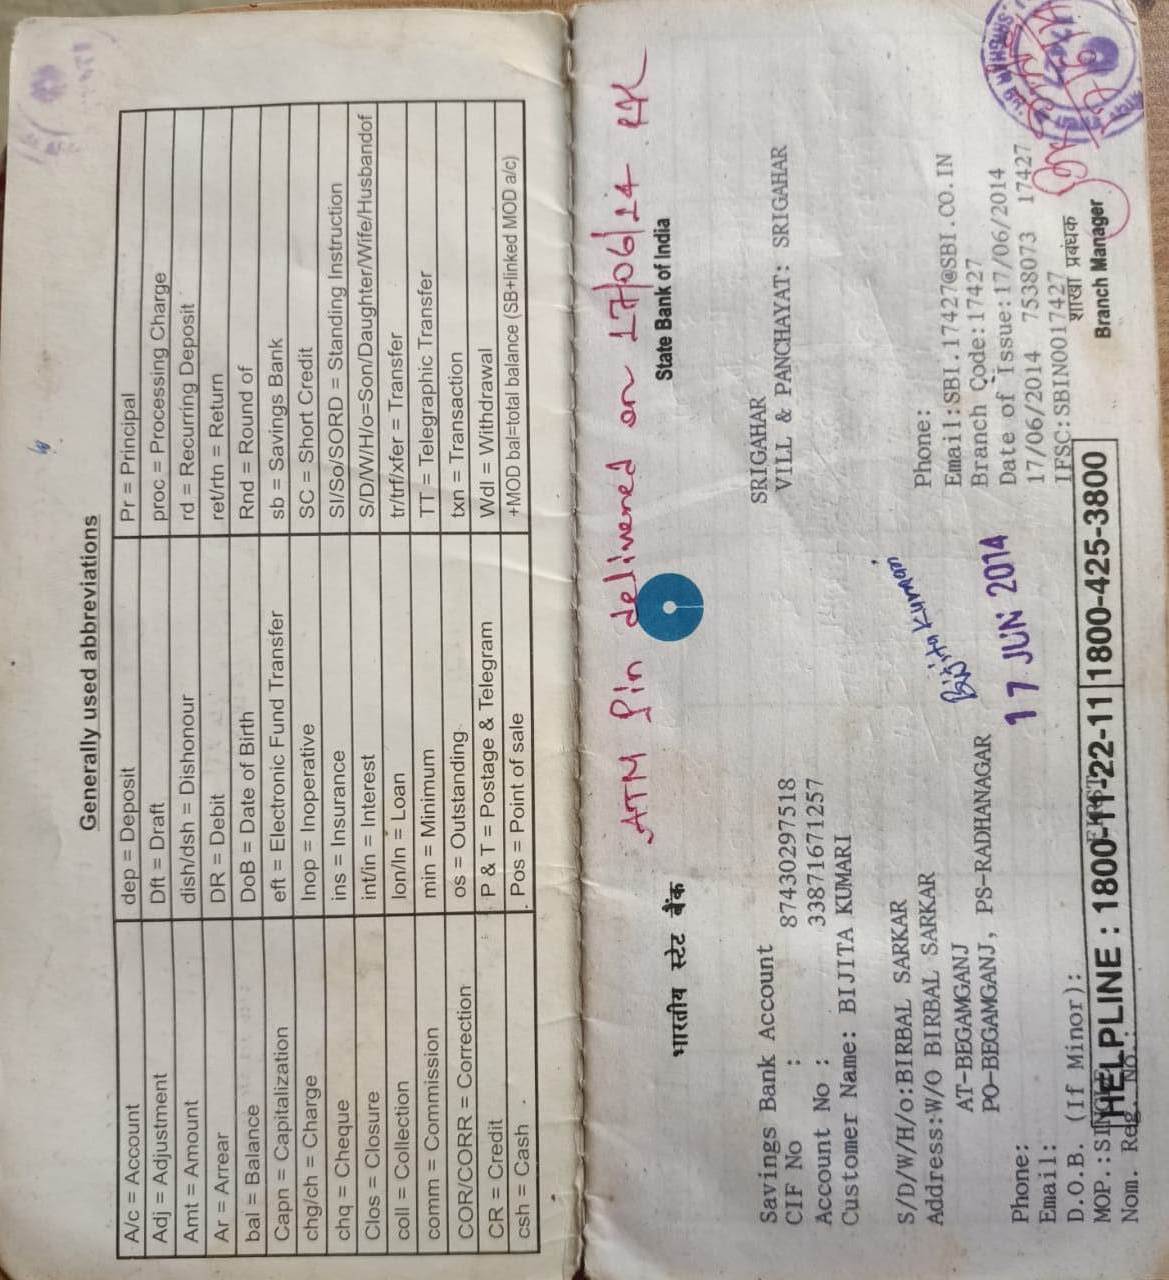 Generally used abbreviations
A/c = Account	dep = Deposit	Pr = Principal
Adj = Adjustment	Dft = Draft	proc = Processing Charge
Amt = Amount	dish/dsh = Dishonour	rd = Recurring Deposit
Ar = Arrear	DR = Debit	ret/rtn = Return
bal = Balance	DoB = Date of Birth	Rnd = Round of
Capn = Capitalization	eft = Electronic Fund Transfer	sb = Savings Bank
chg/ch = Charge	Inop = Inoperative	SC = Short Credit
chq = Cheque	ins = Insurance	SI/So/SORD = Standing Instruction
Clos = Closure	int/in = Interest	S/D/W/H/o=Son/Daughter/Wife/Husbandof
coll = Collection	lon/ln = Loan	tr/trf/xfer = Transfer
comm = Commission	min = Minimum	TT = Telegraphic Transfer
COR/CORR = Correction	os = Outstanding	txn = Transaction
CR = Credit	P & T = Postage & Telegram	Wdl = Withdrawal
csh = Cash	Pos = Point of sale	+MOD bal=total balance (SB+linked MOD a/c)
ATM Pin delivered on 17/06/14
भारतीय स्टेट बैंक	State Bank of India
Savings Bank Account	SRIGAHAR
CIF No : 87430297518	VILL & PANCHAYAT: SRIGAHAR
Account No : 33871671257
Customer Name: BIJITA KUMARI
S/D/W/H/o:BIRBAL SARKAR	Phone:
Address:W/O BIRBAL SARKAR	Bijita Kumari	Email:SBI.17427@SBI.CO.IN
AT-BEGAMGANJ	Branch Code:17427
PO-BEGAMGANJ, PS-RADHANAGAR	Date of Issue:17/06/2014
Phone:	17 JUN 2014	17/06/2014 7538073 17427
Email:	IFSC:SBIN0017427
D.O.B. (If Minor):	शाखा प्रबंधक
MOP.:	Branch Manager
HELPLINE : 1800-11-22-11 1800-425-3800
Nom. Reg. No.: